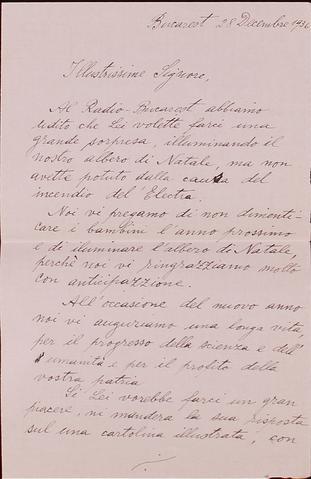 Bucarest 28 Decembre 1936
Illustrissime Signore,
Al Radio-Bucarest abbiamo
udito che Lei volette farci una
grande sorpresa, illuminando il
nostro albero di Natale, ma non
avette potuto dalla causa del
incendio del'Electra.
Noi vi pregamo di non dimenti-
care i bambini l'anno prossimo
e di iluminare l'albero di Natale,
perchè noi vi ringrazziamo molto
con anticipazzione.
All'occasione del nuovo anno
noi vi auguriamo una longa vita,
per il progresso della scienza e dell'
umanità e per il profito della
vostra patria
Si Lei vorebbe farci un gran
piacere, ni mandera la sua risposta
sul una cartolina illustrata, con